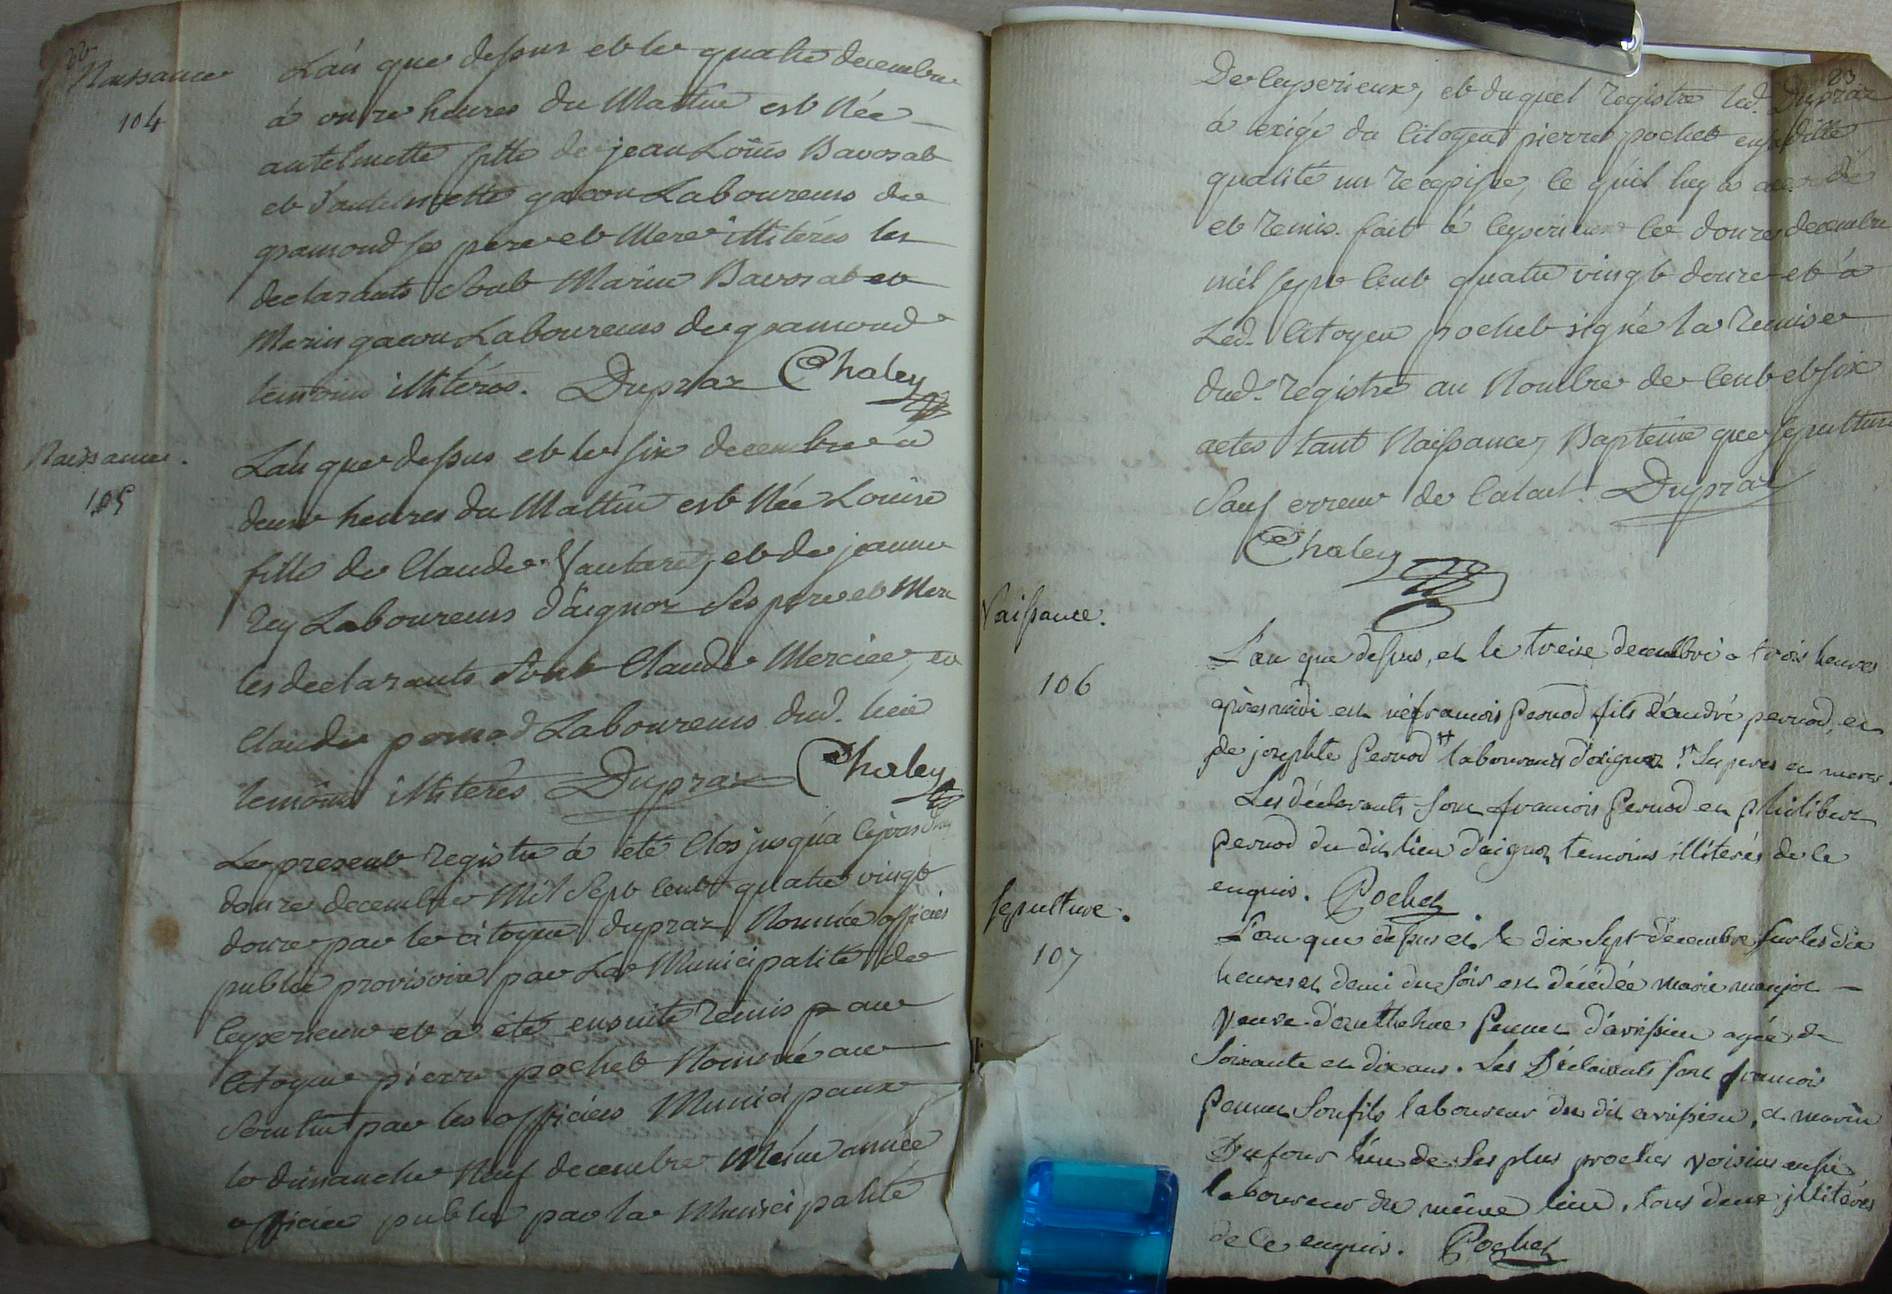 Naissance
104
L'an que dessus et le quatre decembre
à onze heures du Mattin est Née
antelmette fille de jean Loüis Bavosat
et d'antelmette gacon Laboureurs de
gramond ses pere et Mere illitérés les
declarants Sont Marin Bavosat et
Marin gacon Laboureurs de gramond
temoins illitérés. Dupraz Chaley
Naissance.
105
L'an que dessus et le six decembre à
deux heures du Mattin est Née Louise
fille de Claude Vautaret, et de jeanne
Rey Laboureurs d'aignoz Ses pere et Mere
les declarants Sont Claude Mercier, et
Claude pernod Laboureurs dud. lieu
temoins illitérés Dupraz Chaley
Le present registre à été Clos jusqu'a ce jourd'hui
douze decembre Mil Sept Cent quatre vingt
douze par le citoyen dupraz Nommé officier
public provisoire par La Municipalité de
Ceyzerieux et à été ensuite remis par
Citoyen pierre pochet Nommé au
Scrutin par les officiers Municipaux
le dimanche Neuf decembre Même année
officier public par la Municipalité
83.
De Ceyzerieux, et duquel registre led. Dupraz
à exigé du Citoyen pierre pochet en sa ditte
qualité un recepisse, ce qu'il luy à accordé
et remis. fait à Ceyzerieux le douze decembre
mil sept Cent quatre vingt douze et à
Led. Citoyen pochet signé la remise
dud. registre au Nombre de Cent et six
actes tant Naissance, Baptême que sepulture
Sauf erreur de Calcul. Dupraz
Chaley
Naissance.
106
L'an que dessus, et le treize decembre a trois heures
après midi est né françois Pernod fils d'andré pernod, et
de josephte Pernod # laboureurs d'aignoz. # Ses peres et meres
Les déclarants sont françois Pernod et philibert
Pernod du dit lieu d'aignoz temoins illitérés de ce
enquis. Pochet
Sepulture.
107
L'an que dessus et le dix sept decembre sur les dix
heures et demi du soir est décédée marie manjot
veuve d'anthelme Pennet d'avrissieu agée de
Soixante et dix ans. Les Déclarants sont françois
Pennet Son fils laboureur du dit avrissieu, et marin
Dufour l'un de Ses plus proches voisins aussi
laboureur du même lieu, tous deux illitérés
de ce enquis. Pochet